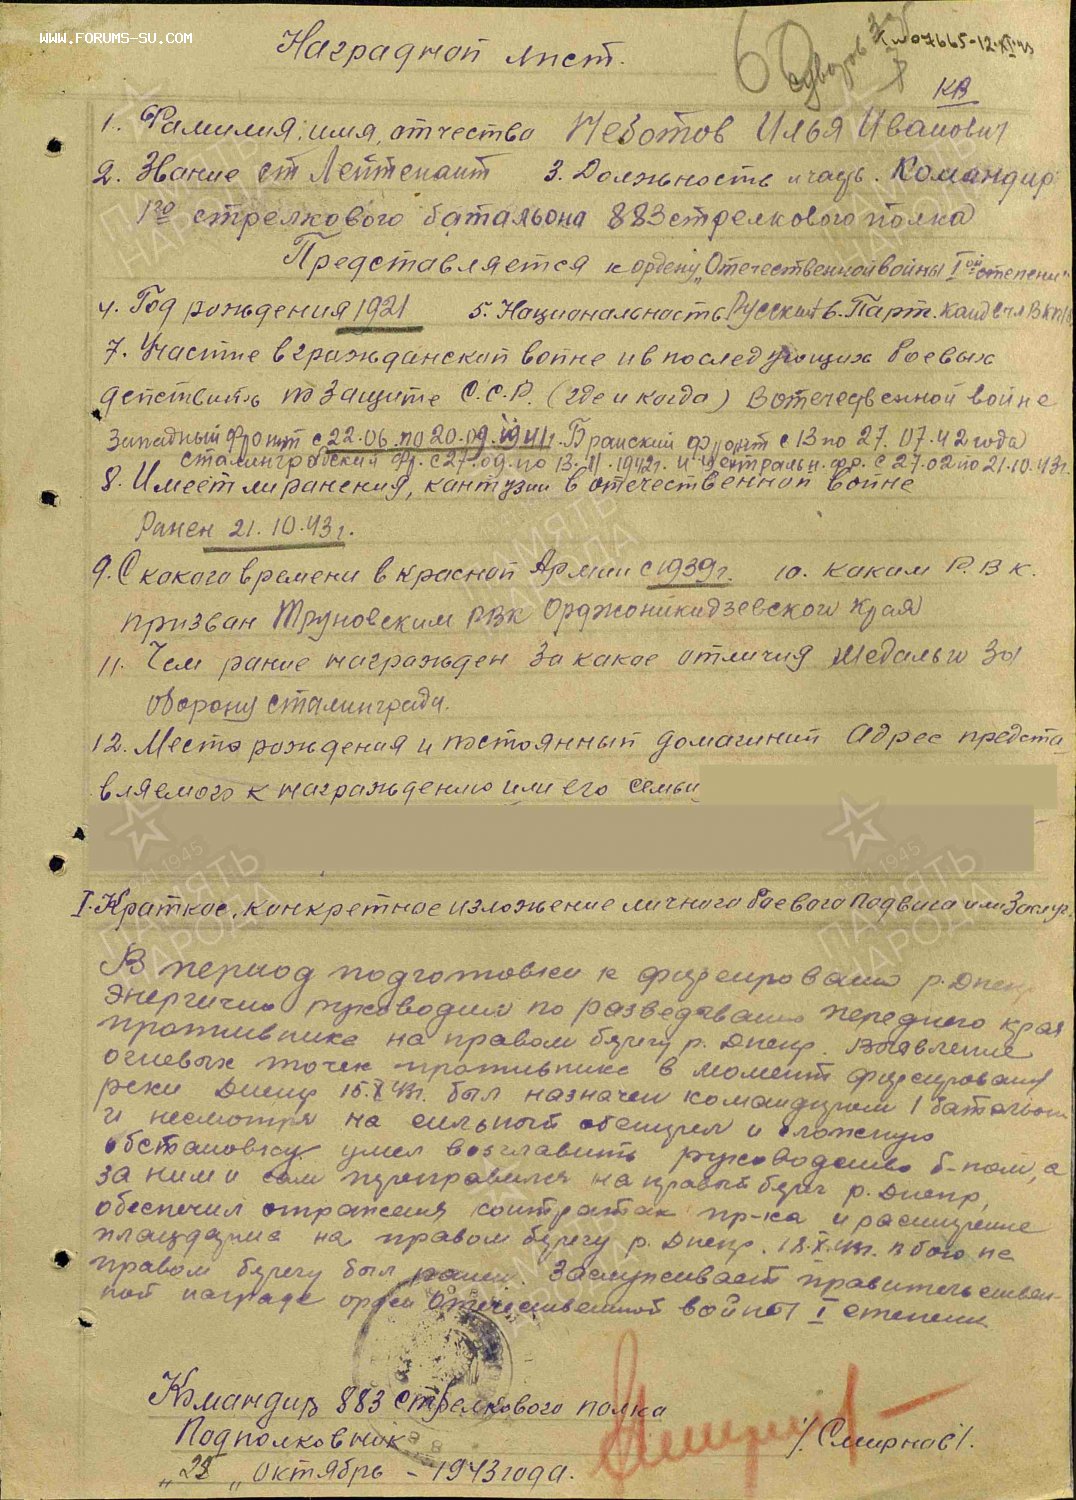 WWW.FORUMS-SU.COM
Наградной лист.
№07665-12.XI.43
КВ
1. Фамилия, имя, отчество Чеботов Илья Иванович
2. Звание ст Лейтенант 3. Должность и часть. Командир
1го стрелкового батальона 883 стрелкового полка
Представляется к ордену „Отечественной войны I ой степени"
4. Год рождения 1921 5. Национальность Русский 6. Парт. канд вчл ВКП/б
7. Участие в гражданской войне и в последующих боевых
действиях по защите С.С.Р. (где и когда) В отечественной войне
Западный фронт с 22.06. по 20.09.1941г. Бранский фронт с 13 по 27.07.42 года
сталинградский фр. с 27.09. по 13.11.1942г. и централън. фр. с 27.02 по 21.10.43г.
8. Имеет ли ранения, кантузии в отечественной войне
Ранен 21.10.43г.
9. С какого времени в красной Армии с 1939г. 10. каким Р.В.К.
призван Труновским РВК Орджоникидзевского Края
11. Чем ранее награжден за какое отличия Медалью За
оборону сталинграда.
12. Место рождения и постоянный домашний Адрес предста
вляемого к награждению или его семьи
I. Краткое, конкретное изложение личного боевого подвига или Заслуг.
В период подготовки к форсированию р. Днепр
энергично руководил по разведованию переднего края
противника на правом берегу р. Днепр. Выявление
огневых точек противника в момент форсирования
реки Днепр 15.X.43г. был назначен командиром 1 батальона
и несмотря на сильный обстрел и сложную
обстановку умел возглавить руководение б-ном, а
за ним и сам переправился на правый берег р. Днепр,
обеспечил отражения контратак пр-ка и расширение
плацдарма на правом берегу р. Днепр. 18.X.43г. в бою на
правом берегу был ранен. Заслуживает правительствен-
ной награде орден Отечественной войны I степени
Командир 883 стрелкового полка
Подполковник /Смирнов/.
„23„ октябрь - 1943 года.
ПАМЯТЬ НАРОДА
ПАМЯТЬ НАРОДА
ПАМЯТЬ НАРОДА
ПАМЯТЬ НАРОДА
ПАМЯТЬ НАРОДА
ПАМЯТЬ НАРОДА